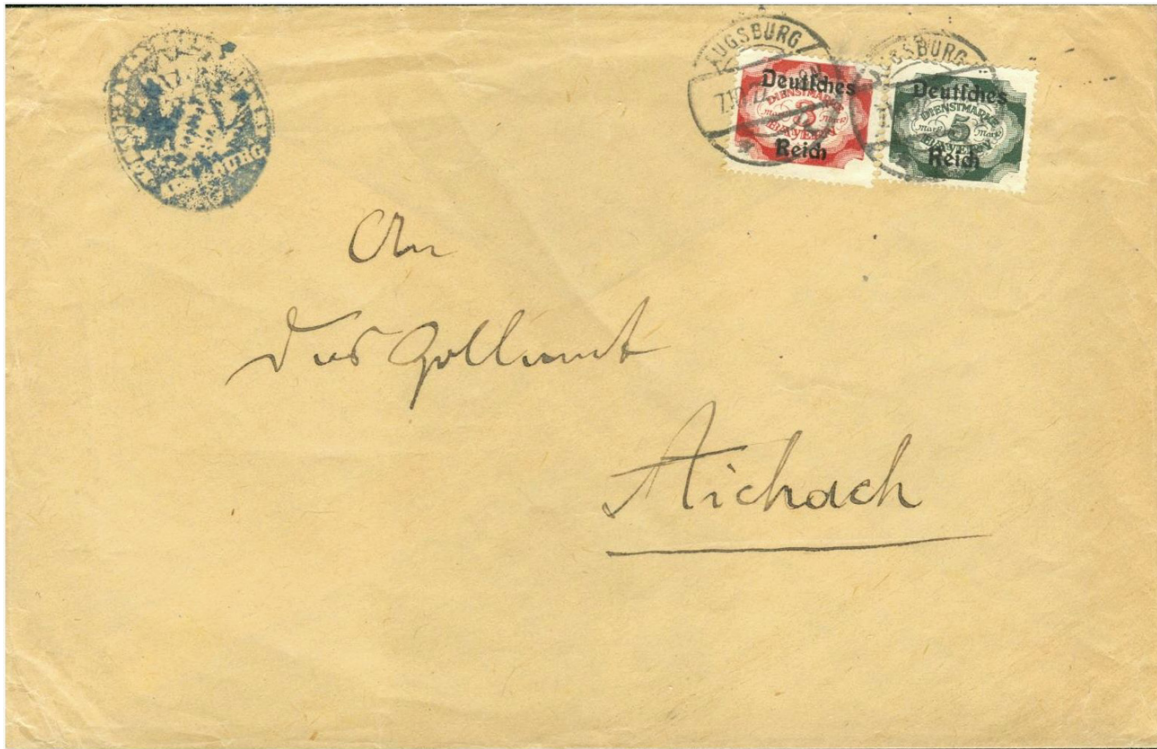 AUGSBURG
Deutsches
DIENSTMARKE
Mark 3 Mark
BAYERN
Reich
AUGSBURG
Deutsches
DIENSTMARKE
Mark 5 Mark
BAYERN
Reich
An
das Zollamt
Aichach